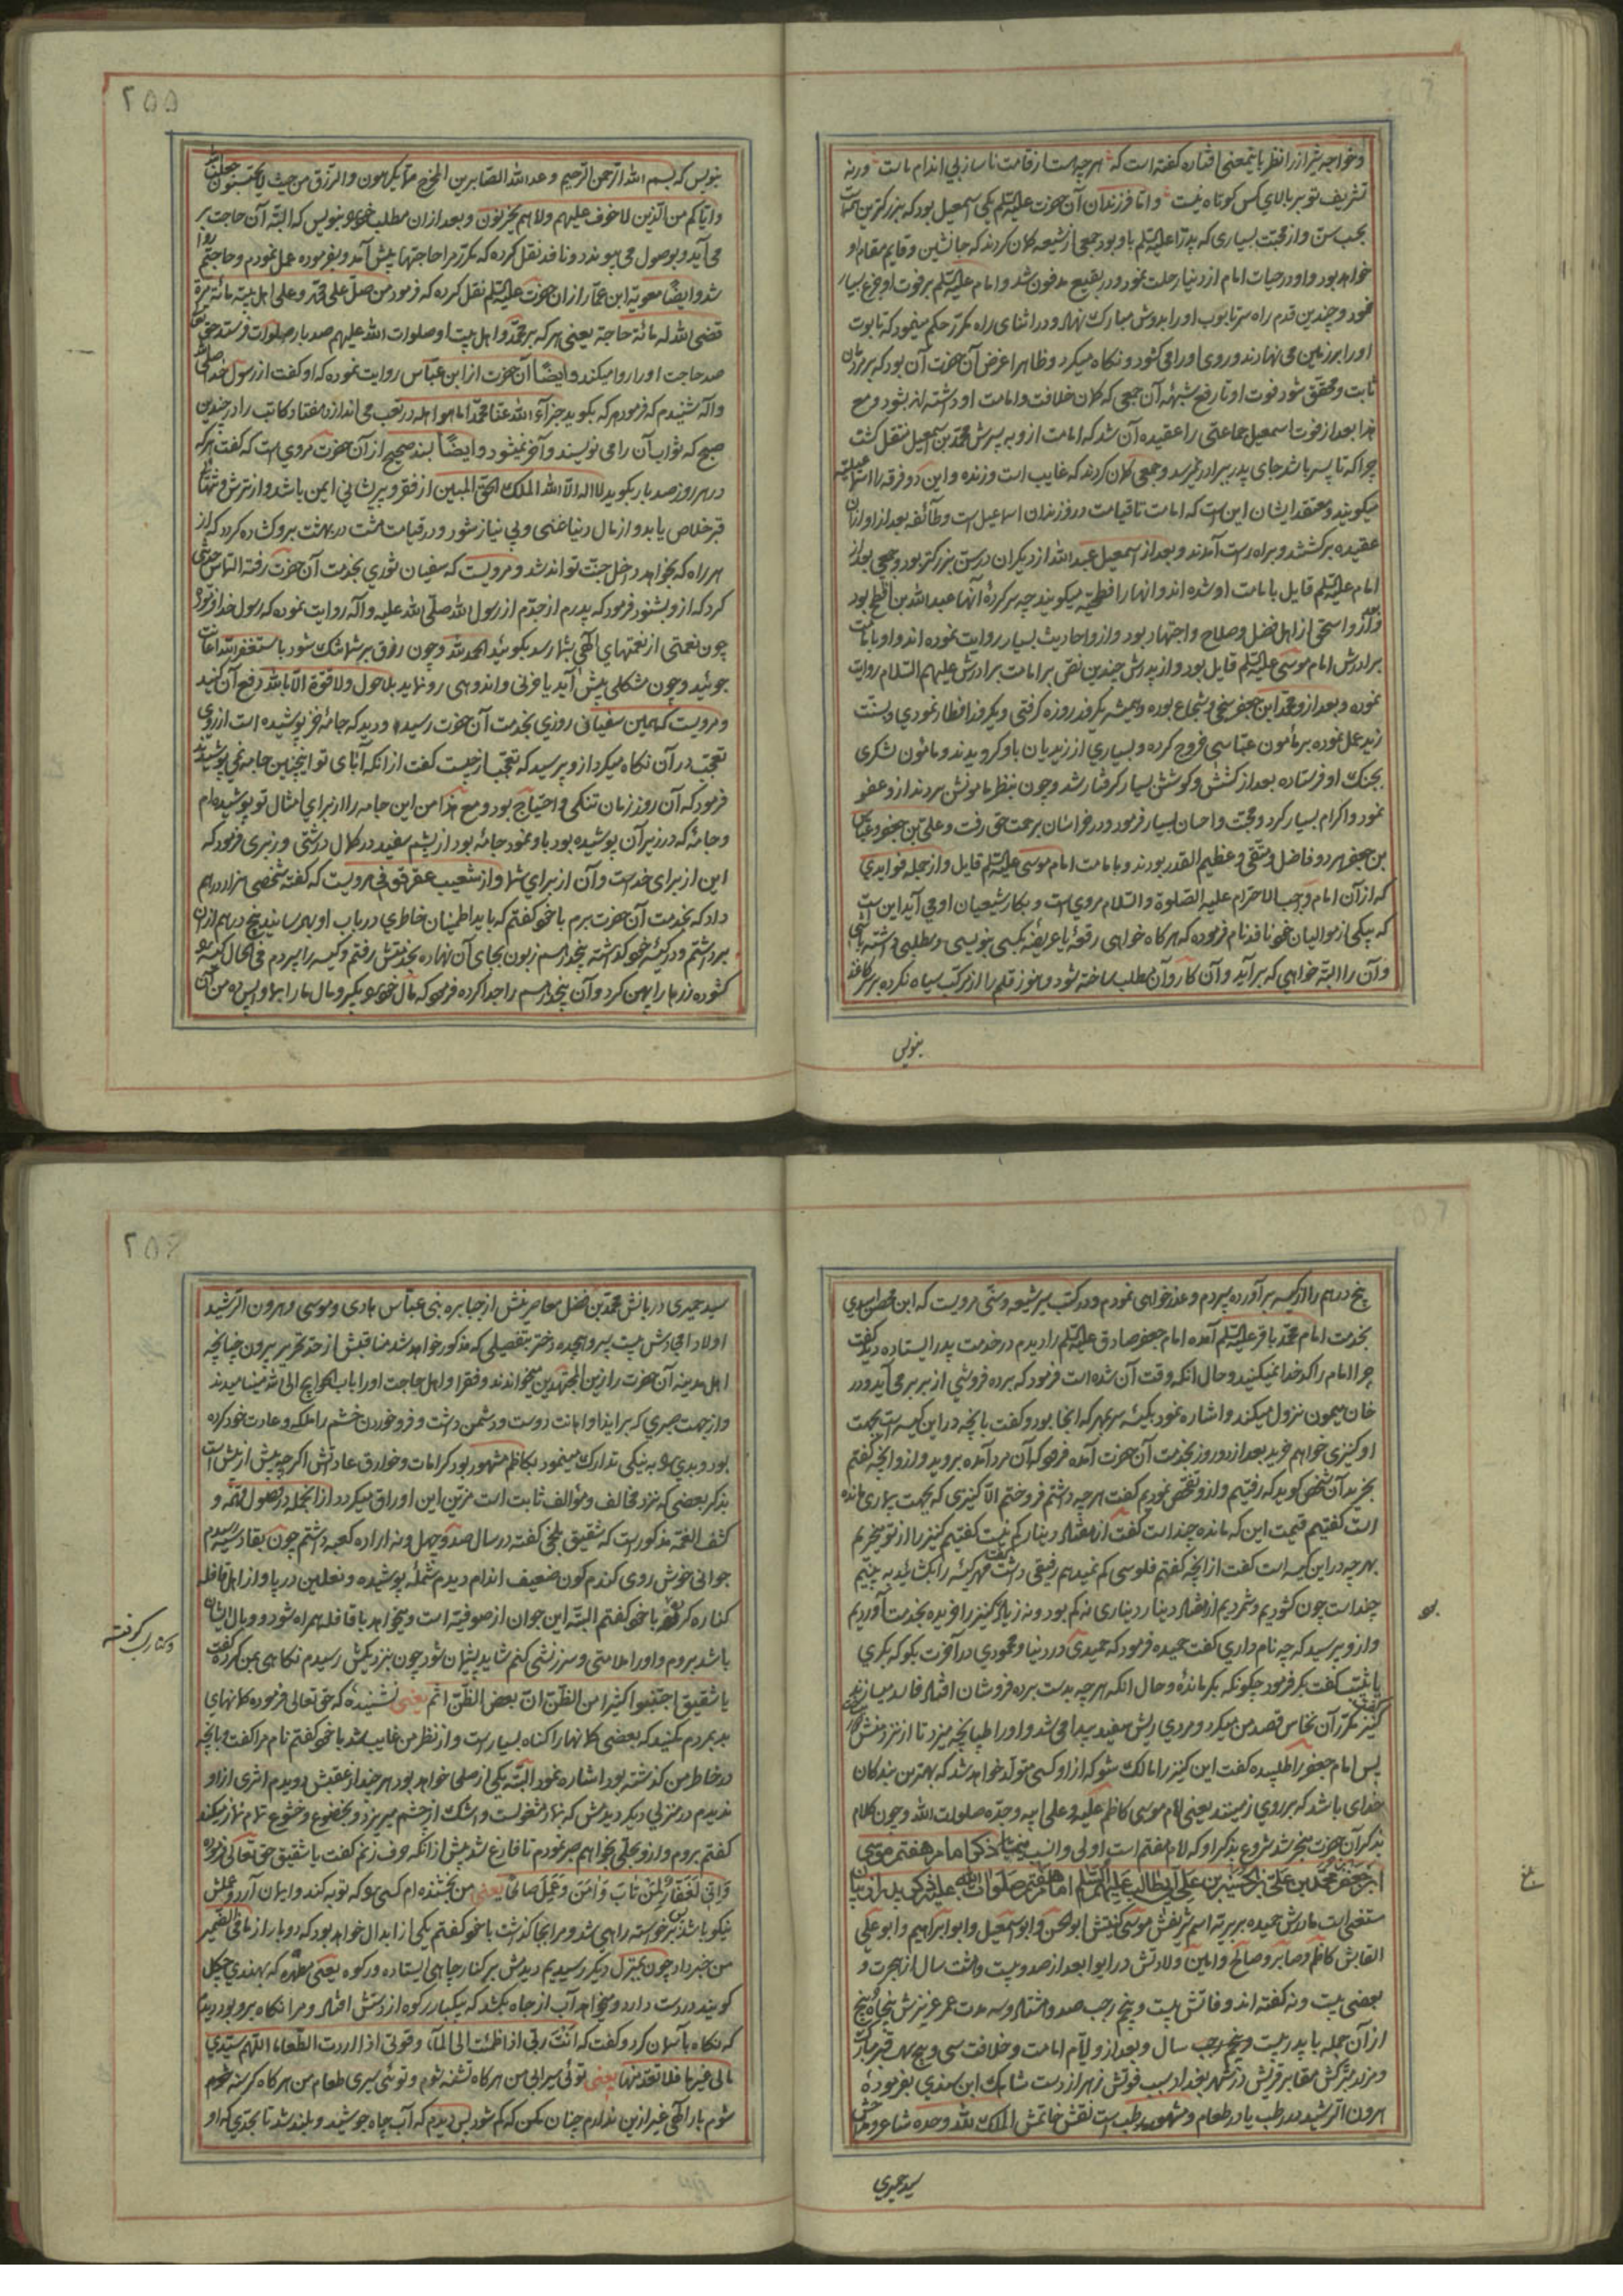 و خواجه شیراز را نظر باینمعنی افتاده گفته است که هرچه هست از قامت ناساز بی اندام ماست ورنه
تشریف تو بر بالای کس کوتاه نیست و اما فرزندان آن حضرت علیه السلم یکی اسمعیل بود که بزرگترین
بحسب سن و از محبت بسیاری که پدر را علیه السلم باو بود جمعی از شیعه گمان کردند که جانشین و قایم مقام او
خواهد بود و او در حیات امام از دنیا رحلت نمود و در بقیع مدفون شد و امام علیه السلم بر فوت او جزع بسیار
نمود و چندین قدم راه سر تابوب او را بدوش مبارک نهاد و در اثنای راه مکرر حکم میفرمود که تابوت
او را بر زمین می نهادند و روی او را می گشود و نگاه میکرد و ظاهرا غرض آن حضرت آن بود که بر مردمان
ثابت و محقق شود فوت او تا رفع شبهه آن جمعی که گمان خلافت و امامت او داشته اند بشود و مع
هذا بعد از فوت اسمعیل جماعتی را عقیده آن شد که امامت ازو به پسرش محمد بن اسمعیل منتقل گشت
چرا که تا پسر باشد جای پدر ببرادر نمیرسد و جمعی گمان کردند که غایب است و زنده و این دو فرقه را اسماعیلیه
میگویند و معتقد ایشان این است که امامت تا قیامت در فرزندان اسماعیل است و طائفه بعد از او از آن
عقیده برگشتند و براه راست آمدند و بعد از اسمعیل عبدالله از دیگران در سن بزرگتر بود و جمعی بعد از
امام علیه السلم قایل بامامت او شده اند و آنها را فطحیه میگویند چه سرکرده آنها عبدالله بن افطح بود
و بعد ازو اسحق از اهل فضل و صلاح و اجتهاد بود و ازو احادیث بسیار روایت نموده اند و او بامامت
برادرش امام موسی علیه السلم قایل بود و از پدرش چندین نص بر امامت برادرش علیهم السلام روایت
نموده و بعد ازو محمد ابن جعفر سخی و شجاع بوده و همیشه یکروز روزه گرفتی و یکروز افطار نمودی و بسنت
زید عمل نموده بر مامون عباسی خروج کرده و بسیاری از زیدیان باو گرویدند و مامون لشکری
بجنگ او فرستاده بعد از کشش و کوشش بسیار گرفتار شد و چون بنظر مامونش بردند ازو عفو
نمود و اکرام بسیار کرد و محبت و احسان بسیار فرمود و در خراسان برحمت حق رفت و علی بن جعفر و عباس
بن جعفر هر دو فاضل و متقی و عظیم القدر بودند و بامامت امام موسی علیه السلم قایل و از جمله فوایدی
که از آن امام واجب الاحترام علیه الصلوة و السلام مرویست و بکار شیعیان او می آید این است
که بیکی از موالیان خود نافذ نام فرموده که هرگاه خواهی رقعه یا عریضه بکسی بنویسی و مطلبی داشته باشی
و آن را البته خواهی که برآید و آن کار و آن مطلب ساخته شود هنوز قلم را از مرکب سیاه نکرده بر سر کاغذ
بنویس
۲۵۵
بنویس که بسم الله الرحمن الرحیم وعد الله الصابرین المخرج مما یکرهون والرزق من حیث لا یحتسبون جعلنا الله
و ایاکم من الذین لا خوف علیهم ولا هم یحزنون و بعد از آن مطلب خود بنویس که البته آن حاجت بر
می آید و بوصول می پیوندد و نافذ نقل کرده که مکرر مرا حاجتها پیش آمد و بفرموده عمل نمودم و حاجتم روا
شد و ایضا معویة ابن عمار از آن حضرت علیه السلم نقل کرده که فرمود من صل علی محمد و علی اهل بیته مائة مرة
قضی الله له مائة حاجة یعنی هر که بر محمد و اهل بیت او صلوات الله علیهم صد بار صلوات فرستد حق تعالی
صد حاجت او را روا میکند و ایضا آن حضرت از ابن عباس روایت نموده که او گفت از رسول خدا صلی الله علیه
و آله شنیدم که فرمود هر که بگوید جزاء الله عنا محمدا ما هو اهله در تعب می اندازد هفتاد کاتب را در چندین
صبح که ثواب آن را می نویسند و آخر نمیشود و ایضا بسند صحیح از آن حضرت مروی است که گفت هر که
در هر روز صد بار بگوید لا اله الا الله الملک الحق المبین از فقر و پریشانی ایمن باشد و از ترس و تنهائی
قبر خلاص یابد و از مال دنیا غنی و بی نیاز شود و در قیامت هشت در بهشت برو گشاده گردد که از
هر راه که بخواهد داخل جنت تواند شد و مرویست که سفیان ثوری بخدمت آن حضرت رفته التماس حدیثی
کرد که ازو بشنود فرمود که پدرم از جدم از رسول الله صلی الله علیه و آله روایت نموده که رسول خدا فرمود
چون نعمتی از نعمتهای الهی بشما رسد بگوئید الحمد لله و چون رزق بر شما تنگ شود باستغفر الله اعانت
جوئید و چون مشکلی پیش آید یا حزنی و اندوهی رو نماید بلا حول ولا قوة الا بالله دفع آن کنید
و مرویست که همین سفیان روزی بخدمت آن حضرت رسید و دید که جامه خز پوشیده است از روی
تعجب در آن نگاه میکرد ازو پرسید که تعجب از چیست گفت از انکه آبای تو اینچنین جامه نمی پوشیدند
فرمود که آن روز زمان تنگی و احتیاج بود و مع هذا من این جامه را از برای امثال تو پوشیده ام
و جامه که در زیر آن پوشیده بود باو نمود جامه بود از پشم سفید در کمال درشتی و زبری فرمود که
این از برای خداست و آن از برای شما و از شعیب عقرقوفی مرویست که گفته شخصی هزار درهم
داد که بخدمت آن حضرت برم با خود گفتم که باید اطمینان خاطری در باب او بهم رسانید پنج درهم از آن
برداشتم و در کیسه خود گذاشته پنجدرهم زبون بجای آن نهاده بخدمتش رفتم و کیسه را سپردم فی الحال کیسه
گشوده زرها را پهن کرد و آن پنجدرهم را جدا کرده فرمود که مال خود بگیر و مال ما را بما واپس ده من
پنج درهم را از کیسه برآورده سپردم و عذر خواهی نمودم و در کتب سیر شیعه و سنی مرویست که ابن اسدی
بخدمت امام محمد باقر علیه السلم آمده امام جعفر صادق علیه السلم را دیدم در خدمت پدر ایستاده گفت
چرا امام را کدخدا نمیکنید و حال انکه وقت آن شده است فرمود که برده فروشی از بربر می آید و در
خان میمون نزول میکند و اشاره نمود بکیسه سربمهر که انجا بود و گفت بانچه در این کیسه است بجهت
او کنیزی خواهم خرید بعد از دو روز بخدمت آن حضرت آمده فرمود که آن مرد آمده بروید و ازو آنچه گفتم
بخرید آن شخص گوید که رفتیم و ازو تفحص نمودیم گفت هرچه داشتم فروختم الا کنیزی که بجهت بیماری مانده
است گفتیم قیمت این که مانده چند است گفت از هفتاد دینار کم نیست گفتیم کنیز را از تو میخریم
بهرچه در این کیسه است گفت از انچه گفتم فلوسی کم نمیدهم رفیقی داشت گفت مهر کیسه را بگشائید به بینیم
چند است چون گشودیم و شمردیم از هفتاد دینار دیناری نه کم بود و نه زیاد کنیز را خریده بخدمت آوردیم
و ازو پرسید که چه نام داری گفت حمیده فرمود که حمیدی در دنیا و محمودی در آخرت بگو که بکری
یا ثیب گفت بکر فرمود چگونه بکر مانده و حال انکه هرچه بدست برده فروشان افتد فاسد میسازند
کنیز گفت مکرر آن نخاس قصد من میکرد و مردی ریش سفید پیدا می شد و او را طپانچه میزد تا از نزد منش
پس امام جعفر را طلبیده گفت این کنیز را مالک شو که از او کسی متولد خواهد شد که بهترین بندگان
خدای باشد که بر روی زمینند یعنی امام موسی کاظم علیه و علی ابیه و جده صلوات الله و چون کلام
بذکر آن حضرت منجر شد شروع بذکر او که امام هفتم است اولی و انسب مینماید ذکر امام هفتم موسی
بن جعفر بن محمد بن علی بن الحسین بن علی ابی طالب علیهم السلم امام هفتم صلوات الله علیه
مستغنی است مادرش حمیده بربریه اسم شریفش موسی کنیتش ابو الحسن و ابو اسمعیل و ابو ابراهیم و ابو علی
القابش کاظم و صابر و صالح و امین ولادتش در ابوا بعد از صد و بیست و هشت سال از هجرت و
بعضی بیست و نه گفته اند وفاتش بیست و پنج رجب صد و هشتاد و سه مدت عمر عزیزش پنجاه و پنج
از آن جمله با پدر بیست سال و بعد ازو ایام امامت و خلافت سی و پنج سال قبر مبارک
و مرقد متبرکش مقابر قریش در شهر بغداد سبب فوتش زهر از دست شاهک ابن سندی بفرموده
هرون الرشید در رطب یا در طعام و مشهور رطب است نقش خاتمش الملک لله وحده شاعر و مداحش
سید حمیری
۲۵۶
سید حمیری دربانش محمد بن فضل معاصرینش از جبابره بنی عباس هادی و موسی و هرون الرشید
اولاد امجادش بیست پسر و هجده دختر بتفصیلی که مذکور خواهد شد مناقبش از حد تقریر بیرون چنانچه
اهل مدینه آن حضرت را زین المجتهدین میخواندند و فقرا و اهل حاجت او را باب الحوایج الی الله مینامیدند
و از جهت صبری که بر ایذا و اهانت دوست و دشمن داشت و فرو خوردن خشم را ملکه و عادت خود کرده
بود و بدی را به نیکی تدارک مینمود بکاظم مشهور بود کرامات و خوارق عاداتش اگرچه بیش از بیش است
بذکر بعضی که نزد مخالف و مؤالف ثابت است مزین این اوراق میگردد از انجمله در فصول مهمه و
کشف الغمه مذکور است که شقیق بلخی گفته در سال صد و چهل و نه اراده کعبه داشتم چون بقادسیه رسیدم
جوانی خوش روی گندم گون ضعیف اندام دیدم شمله پوشیده و نعلین در پا و از اهل قافله
کناره کرفته با خود گفتم البته این جوان از صوفیه است و میخواهد با قافله همراه شود و وبال ایشان
باشد بروم و او را ملامتی و سرزنشی کنم شاید پشیمان شود چون بنزدیکش رسیدم نگاهی بمن کرده گفت
یا شقیق اجتنبوا کثیرا من الظن ان بعض الظن اثم یعنی نشنیده که حق تعالی فرموده گمانهای
بد بمردم مکنید که بعضی گمانها را گناه بسیار است و از نظر من غایب شد با خود گفتم نام مرا گفت و بانچه
در خاطر من گذشته بود اشاره نمود البته یکی از صلحا خواهد بود هرچند از عقبش دویدم اثری از او
ندیدم در منزلی دیگر دیدمش که بنماز مشغولست و اشک از چشم میریزد و بخضوع و خشوع تمام نماز میکند
گفتم بروم و ازو بحلی بخواهم صبر نمودم تا فارغ شد پیش از انکه حرف زنم گفت یا شقیق حق تعالی فرموده
و انی لغفار لمن تاب و امن و عمل صالحا یعنی من بخشنده ام کسی را که توبه کند و ایمان آرد و عملش
نیکو باشد پس برخواسته راهی شد و مرا بجا گذاشت با خود گفتم یکی از ابدال خواهد بود که دو بار از مافی الضمیر
من خبر داد چون بمنزل دیگر رسیدیم دیدمش بر کنار چاهی ایستاده و رکوه یعنی مطهره که بهندی چهکل
گویند در دست دارد و میخواهد آب از چاه بکشد که بیکبار رکوه از دستش افتاد و مرا نگاه برو بود دیدم
که نگاه بآسمان کرد و گفت که انت ربی اذا ظمئت الی الماء و قوتی اذا اردت الطعاما اللهم سیدی
مالی غیرها فلا تعدمنیها یعنی توئی سیرابی من هرگاه تشنه شوم و توئی سیری طعام من هرگاه گرسنه
شوم بار الهی غیر ازین ندارم چنان مکن که گم شود پس دیدم که آب چاه جوشید و بلند شد تا بحدی که او
و کناره کرفته